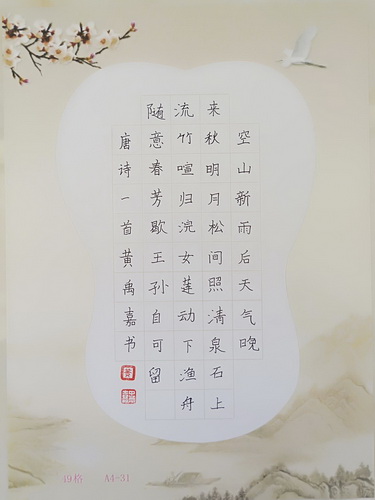 空山新雨后天气晚
来秋明月松间照清泉石上
流竹喧归浣女莲动下渔舟
随意春芳歇王孙自可留
唐诗一首黄禹嘉书
49格 A4-31